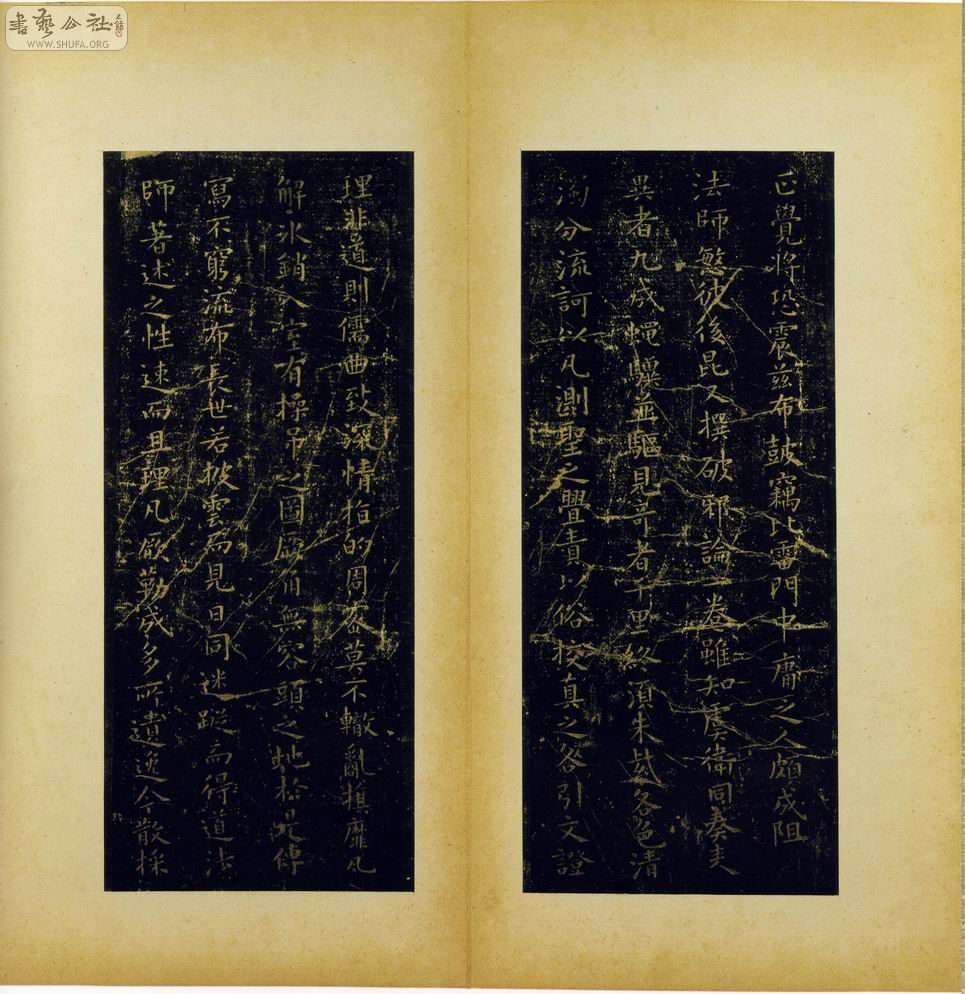 書藝公社
WWW.SHUFA.ORG
正覺將恐震茲布鼓竊比雷門中庸之人頗成阻
法師慜彼後昆又撰破邪論一卷雖知虞衛同奏夫
異者九成蠅驥並驅見奇者千里終須朱紫各色清
濁分流訶以凡測聖之舋責以俗校真之咎引文證
理非道則儒曲致深情指的周密莫不轍亂旗靡瓦
解冰銷入室有操吊之圖厝角無容頭之地於是傳
寫不窮流布長世若披雲而見日同迷蹤而得道法
師著述之性速而且理凡厥勤成多所遺逸今散採